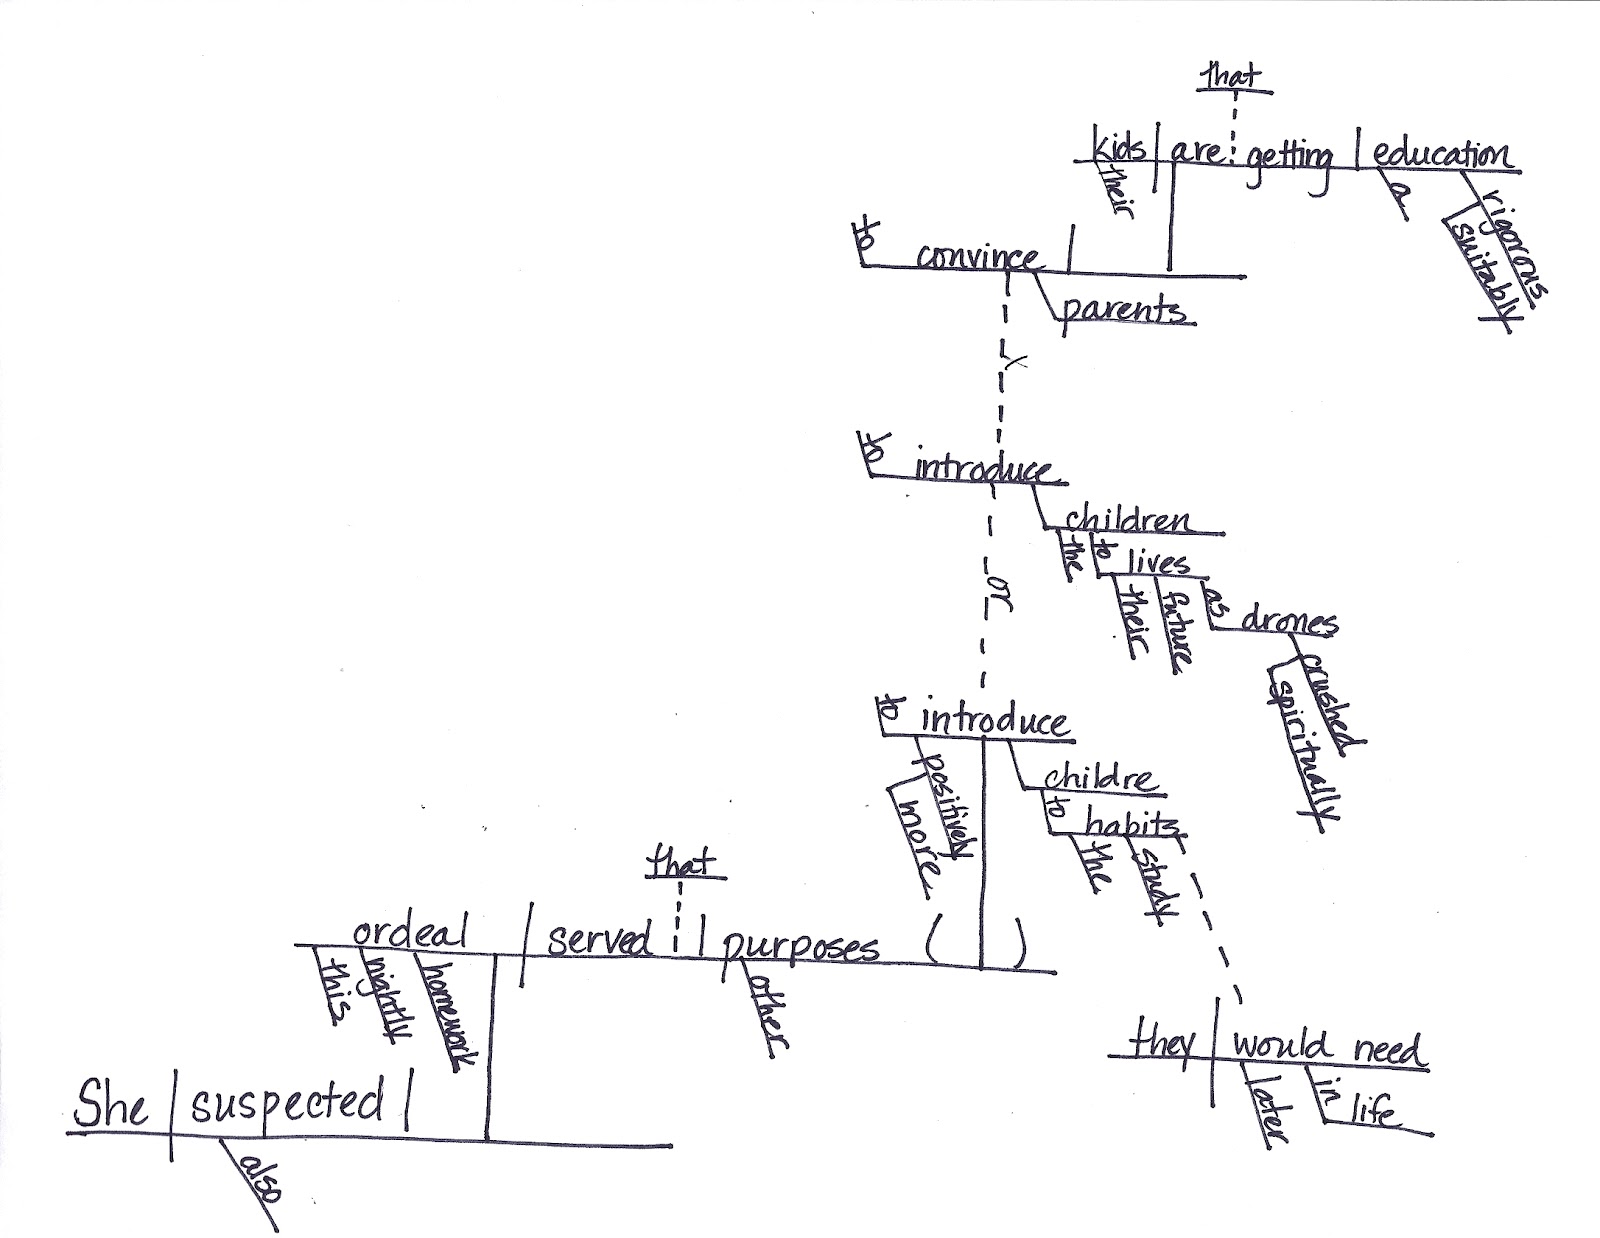 that
kids | are getting | education
their
a
rigorous
suitably
to convince
parents
x
to introduce
children
the
to lives
their
future
as drones
crushed
spiritually
or
to introduce
positively
more
childre
to habits
the
study
that
ordeal | served | purposes ( )
this
nightly
homework
other
they | would need
later
in life
She | suspected |
also